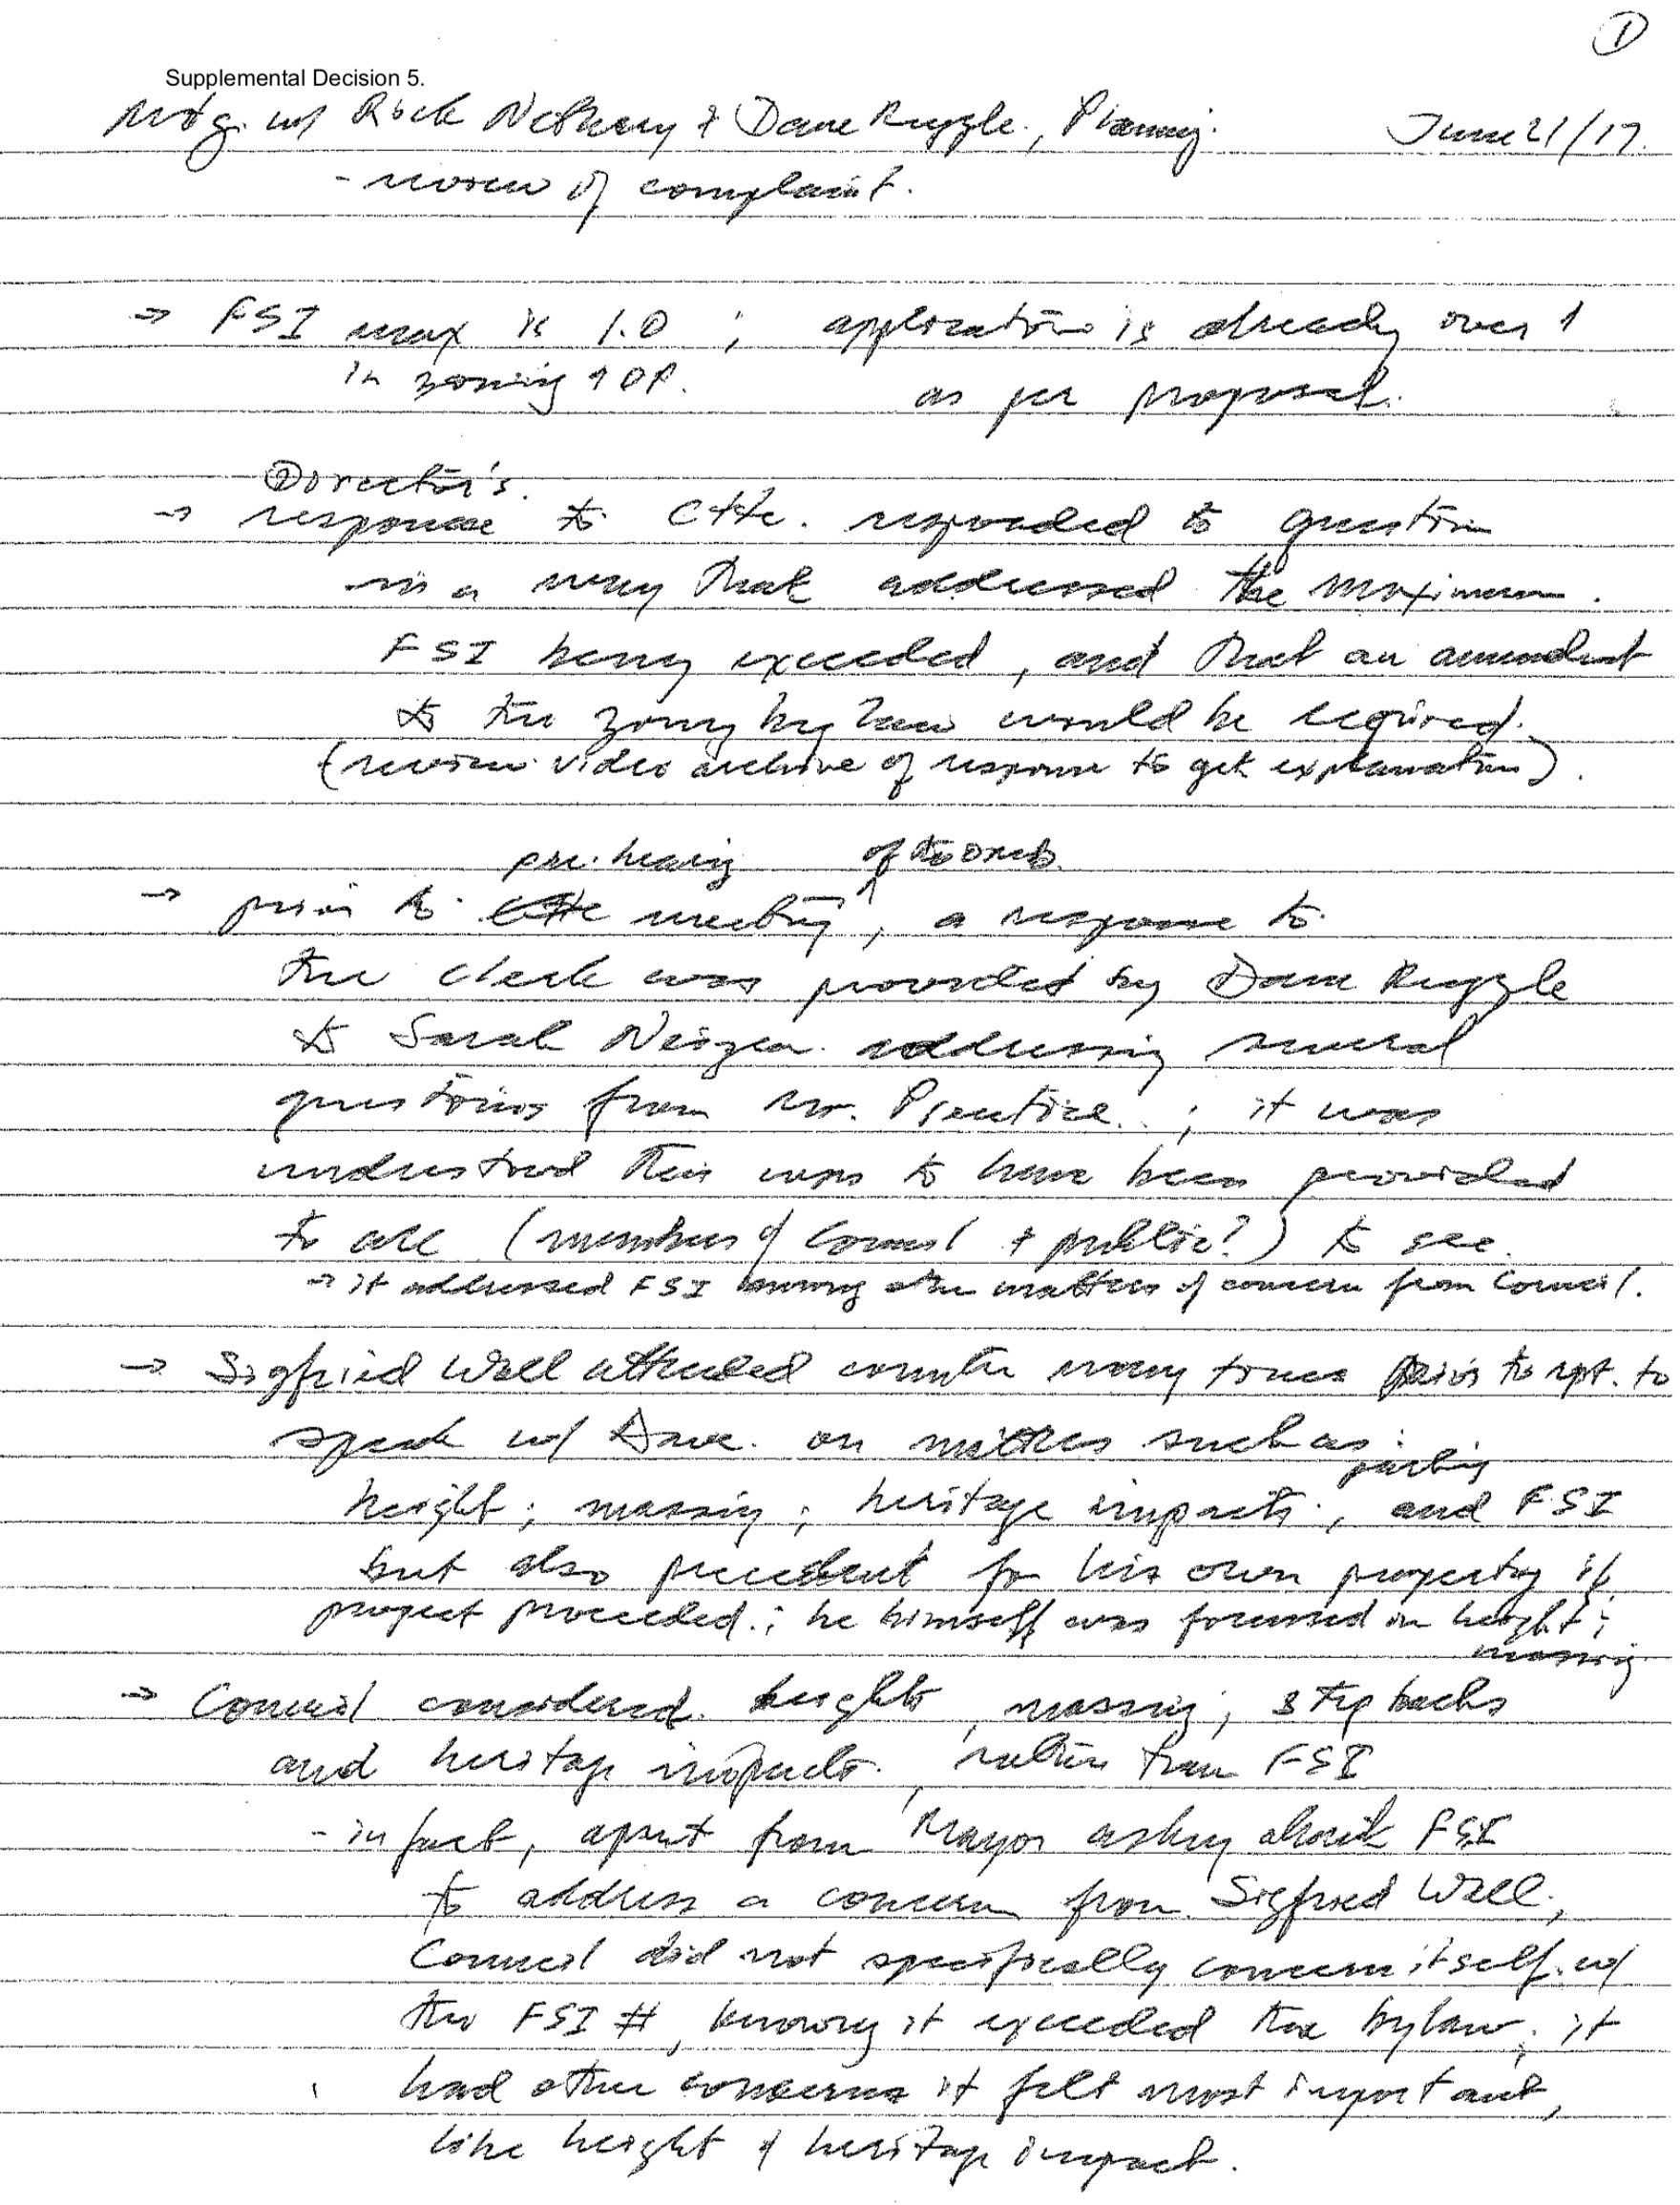 ①
Supplemental Decision 5.
Mtg. w/ Rick & Dave Ruggle, Planning. June 21/17.
- review of complaint.
→ FSI max is 1.0 ; application is already over 1
in zoning & OP. as per proposal.
Director's.
→ response to Ctte. responded to question
in a way that addressed the maximum.
FSI being exceeded, and that an amendment
to the zoning bylaw would be required.
(review video archive of response to get explanation).
pre. hearing of
→ prior to meeting, a response to
the Clerk was provided by Dave Ruggle
to Sarah addressing several
questions from Mr. Prentice. ; it was
understood this was to have been provided
to all (members of Council + public?) to see.
→ it addressed FSI among other matters of concern from Council.
→ Sigfried Wall attended counter many times prior to rpt. to
speak w/ Dave. on matters such as :
parking
height ; massing ; heritage impacts ; and FSI
but also precedent for his own property if
project proceeded. ; he himself was focussed on height ;
massing
→ Council considered. height, massing, stepbacks
and heritage impacts. , rather than FSI
- in fact, apart from Mayor asking about FSI
to address a concern from Sigfried Wall,
Council did not specifically concern itself w/
the FSI #, knowing it exceeded the bylaw ; it
had other concerns it felt most important,
like height & heritage impact.